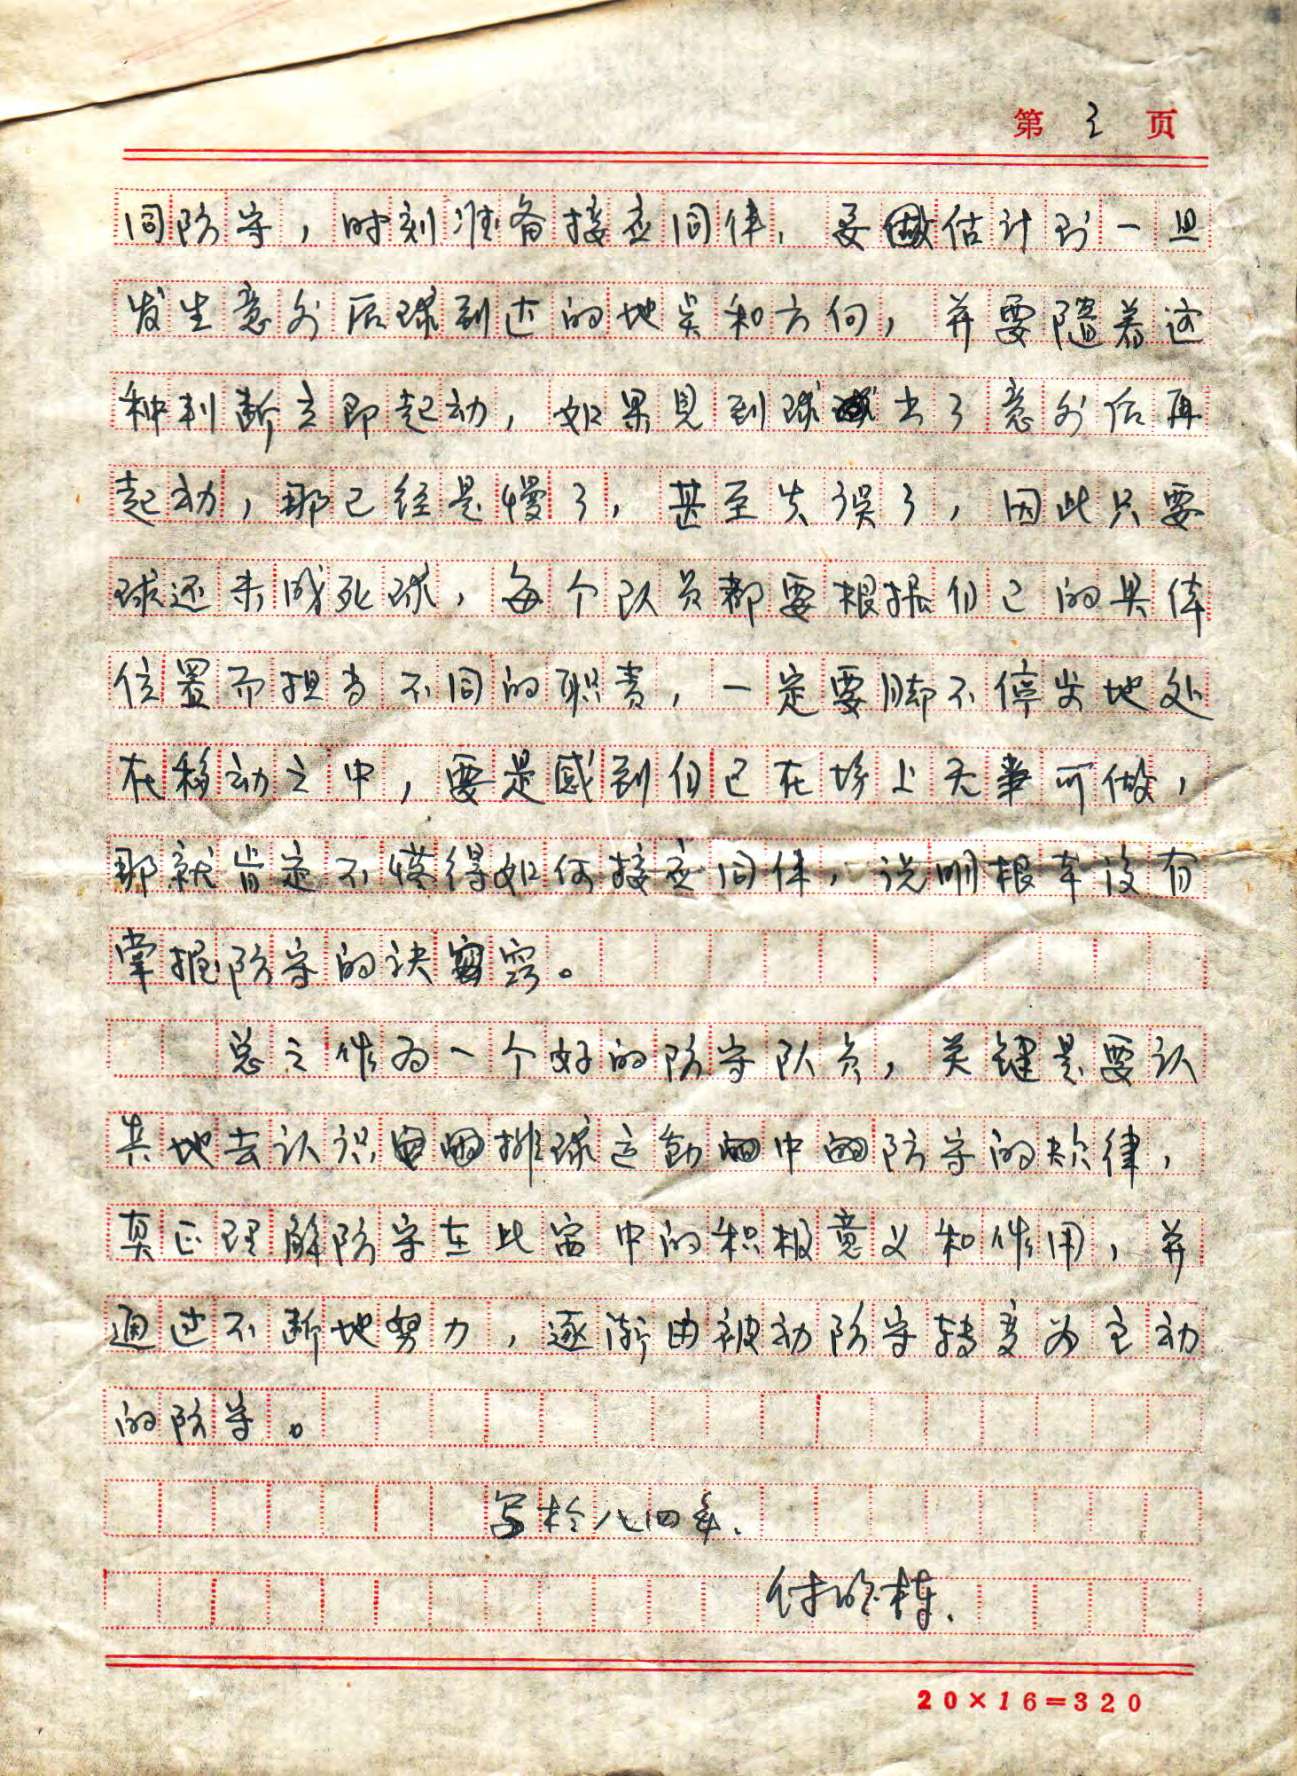 第 3 页
同防守，时刻准备接应同伴，要估计到一旦
发生意外后球到达的地点和方向，并要随着这
种判断立即起动，如果见到球出了意外后再
起动，那已经是慢了，甚至失误了，因此只要
球还未成死球，每个队员都要根据自己的具体
位置而担当不同的职责，一定要脚不停步地处
在移动之中，要是感到自己在场上无事可做，
那就肯定不懂得如何接应同伴，说明根本没有
掌握防守的诀窍。
总之作为一个好的防守队员，关键是要认
真地去认识排球运动中的防守的规律，
真正理解防守在比赛中的积极意义和作用，并
通过不断地努力，逐渐由被动防守转变为主动
的防守。
写于八四年.
付
20×16=320